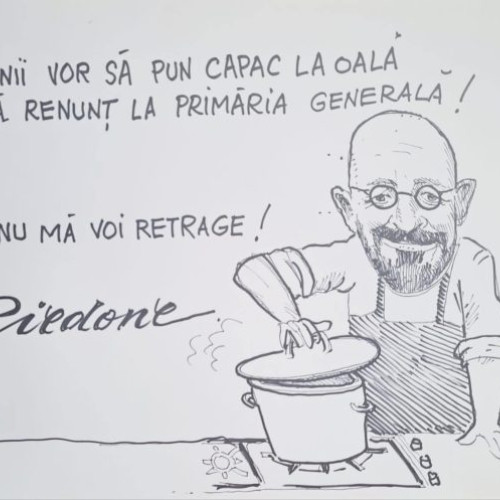 NII VOR SĂ PUN CAPAC LA OALĂ
RENUNȚ LA PRIMĂRIA GENERALĂ!
NU MĂ VOI RETRAGE!
Piedone